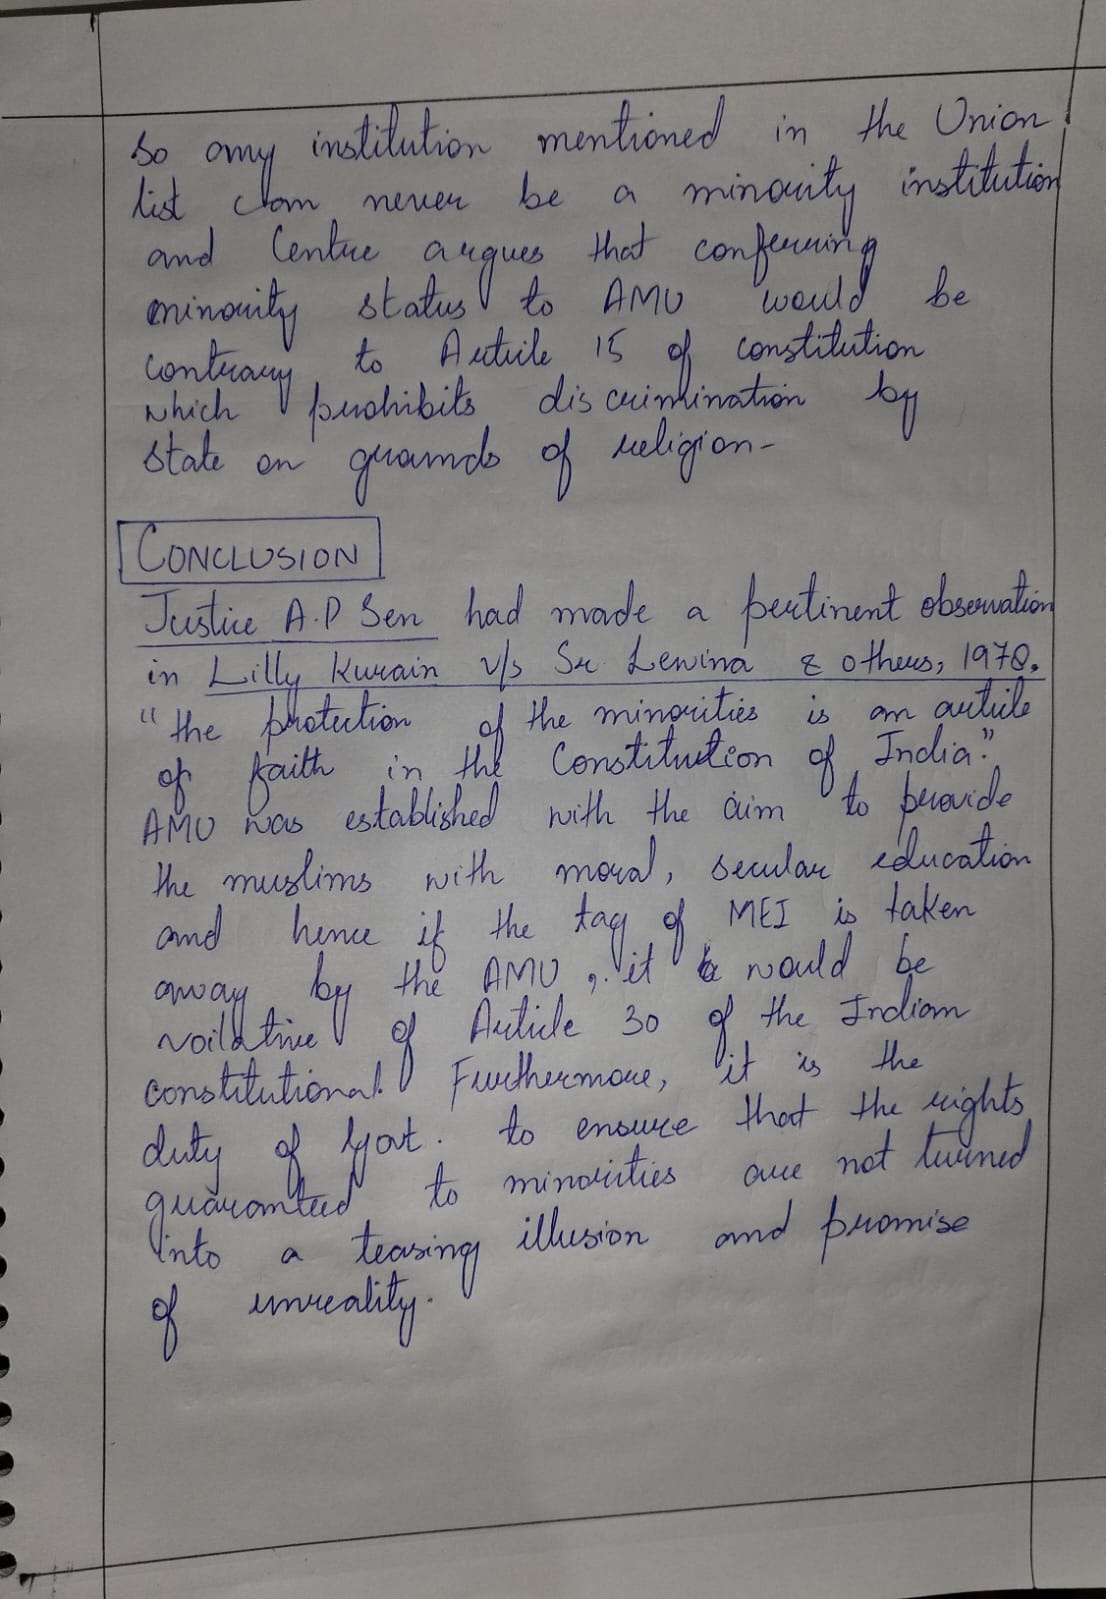 So any institution mentioned in the Union
list can never be a minority institution
and Centre argues that conferring
minority status to AMU would be
contrary to Article 15 of constitution
which prohibits discrimination by
state on grounds of religion-
CONCLUSION
Justice A.P Sen had made a pertinent observation
in Lilly Kurain v/s Sr Lewina & others, 1978.
"the protection of the minorities is an article
of faith in the Constitution of India".
AMU was established with the aim to provide
the muslims with moral, secular education
and hence if the tag of MEI is taken
away by the AMU, it would be
voilative of Article 30 of the Indian
constitutional. Furthermore, it is the
duty of Govt. to ensure that the rights
guaranteed to minorities are not turned
into a teasing illusion and promise
of unreality.